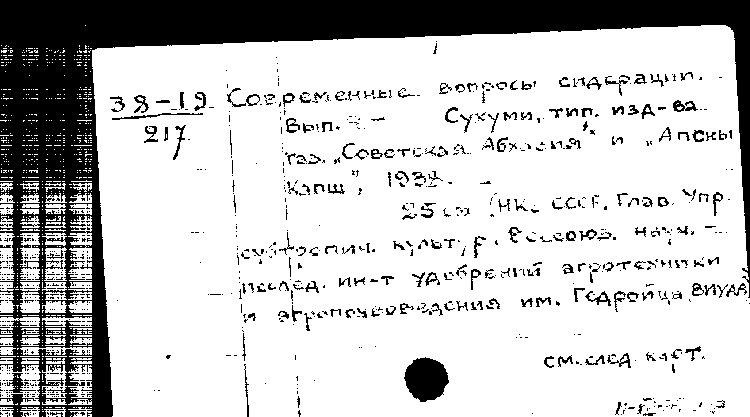 38-19 Современные вопросы сидерации.
217 Вып. - Сухуми, тип. изд-ва
газ. „Советская Абхазия" и „Апсны
Капш", 1938. -
25 см (НКЗ СССР. Глав. Упр.
субтропич. культур. Всесоюз. науч. -
исслед. ин-т удобрений агротехники
и агропочвоведения им. Гедройца ВИУАА)
см. след. карт.